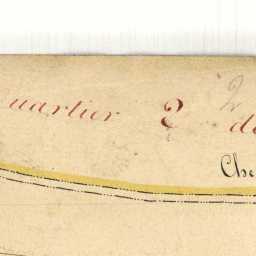 uartier 2 de
2
Che